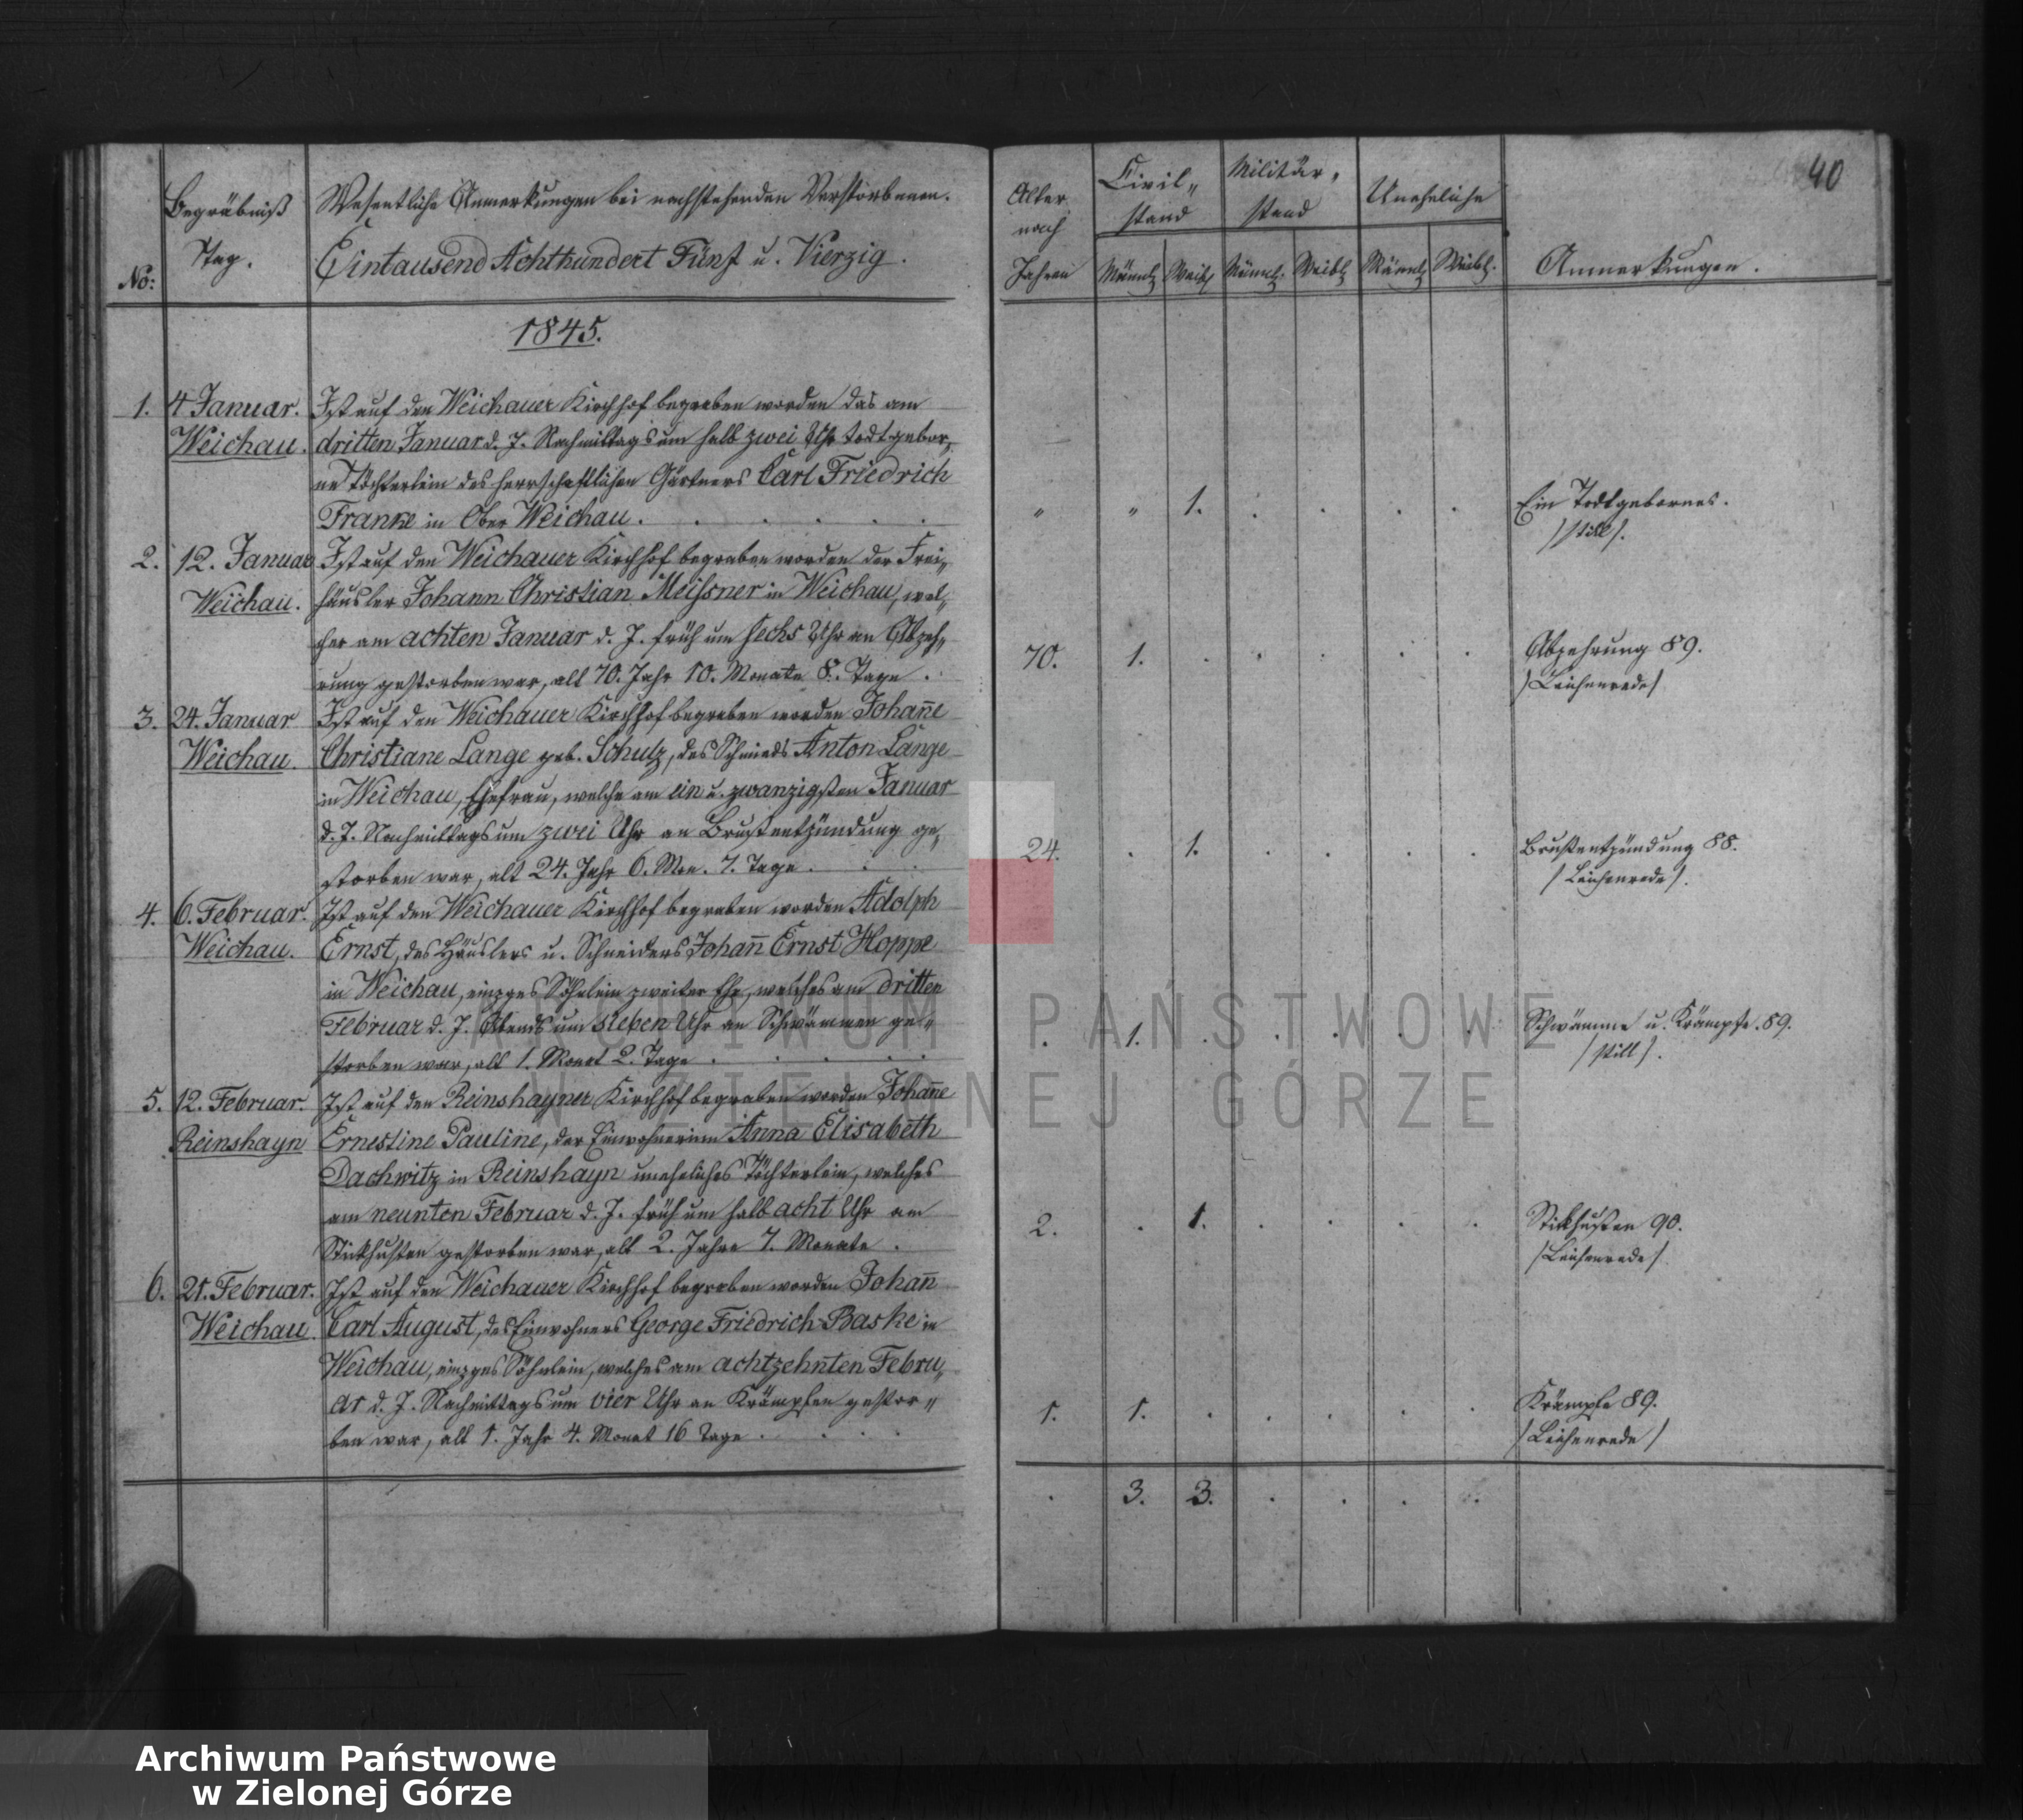 40
No: Begräbniß Tag.
Wesentliche Anmerkungen bei nachstehenden Verstorbenen.
Eintausend Achthundert Fünf u. Vierzig.
Alter nach Jahren
Civil„ stand
Militär„ stand
Uneheliche
Männl. Weibl. Männl. Weibl. Männl. Weibl.
Anmerkungen.
1845.
1. 4 Januar. Ist auf den Weichauer Kirchhof begraben worden das am
Weichau. dritten Januar d. J. Nachmittags um halb zwei Uhr todtgebor„
ne Töchterlein des herrschaftlichen Gärtners Carl Friedrich
Franke in Ober Weichau. „ „ 1. Ein Todtgebornes.
/still/.
2. 12. Januar Ist auf den Weichauer Kirchhof begraben worden der Frei„
Weichau. häusler Johann Christian Meißner in Weichau, wel„
cher am achten Januar d. J. früh um sechs Uhr an Abzeh„
rung gestorben war, alt 70. Jahr 10. Monate 8. Tage. 70. 1. Abzehrung 89.
/Leichenrede/
3. 24. Januar Ist auf den Weichauer Kirchhof begraben worden Johan̄e
Weichau. Christiane Lange geb. Schulz, des Schmieds Anton Lange
in Weichau, Ehefrau, welche am ein u. zwanzigsten Januar
d. J. Nachmittags um zwei Uhr an Brustentzündung ge„
storben war, alt 24. Jahr 6. Mon. 7. Tage. 24. 1. Brustentzündung 88.
/Leichenrede/.
4. 6. Februar. Ist auf den Weichauer Kirchhof begraben worden Adolph
Weichau. Ernst, des Häuslers u. Schneiders Johan̄ Ernst Hoppe
in Weichau, einzges Söhnlein zweiter Ehe, welches am dritten
Februar d. J. Abends um sieben Uhr an Schwämmen ge„
storben war, alt 1. Monat 2. Tage. 1. Schwämme u. Krämpfe. 89.
/still/.
5. 12. Februar. Ist auf den Reinshayner Kirchhof begraben worden Johan̄e
Reinshayn Ernestine Pauline, der Einwohnerinn Anna Elisabeth
Dachwitz in Reinshayn uneheliches Töchterlein, welches
am neunten Februar d. J. früh um halb acht Uhr am
Stickhusten gestorben war, alt 2. Jahre 7. Monate. 2. 1. Stickhusten 90.
/Leichenrede/
6. 21. Februar. Ist auf den Weichauer Kirchhof begraben worden Johan̄
Weichau. Carl August, des Einwohners George Friedrich Baske in
Weichau, einzges Söhnlein, welches am achtzehnten Febru„
ar d. J. Nachmittags um vier Uhr an Krämpfen gestor„
ben war, alt 1. Jahr 4. Monat 16 Tage. 1. 1. Krämpfe 89.
/Leichenrede/
3. 3.
ARCHIWUM PAŃSTWOWE
W ZIELONEJ GÓRZE
Archiwum Państwowe
w Zielonej Górze